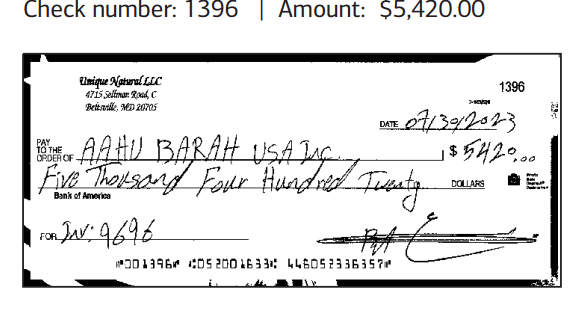 Check number: 1396 | Amount: $5,420.00
Unique Natural LLC
4715 Sellman Road, C
Beltsville, MD 20705
1396
DATE 07/30/2023
PAY TO THE ORDER OF AAHU BARAH USA Inc. $ 5420.00
Five Thousand Four Hundred Twenty DOLLARS
Bank of America
FOR Inv: 9696
⑈001396⑈ ⑆052001633⑆ 446052336357⑈